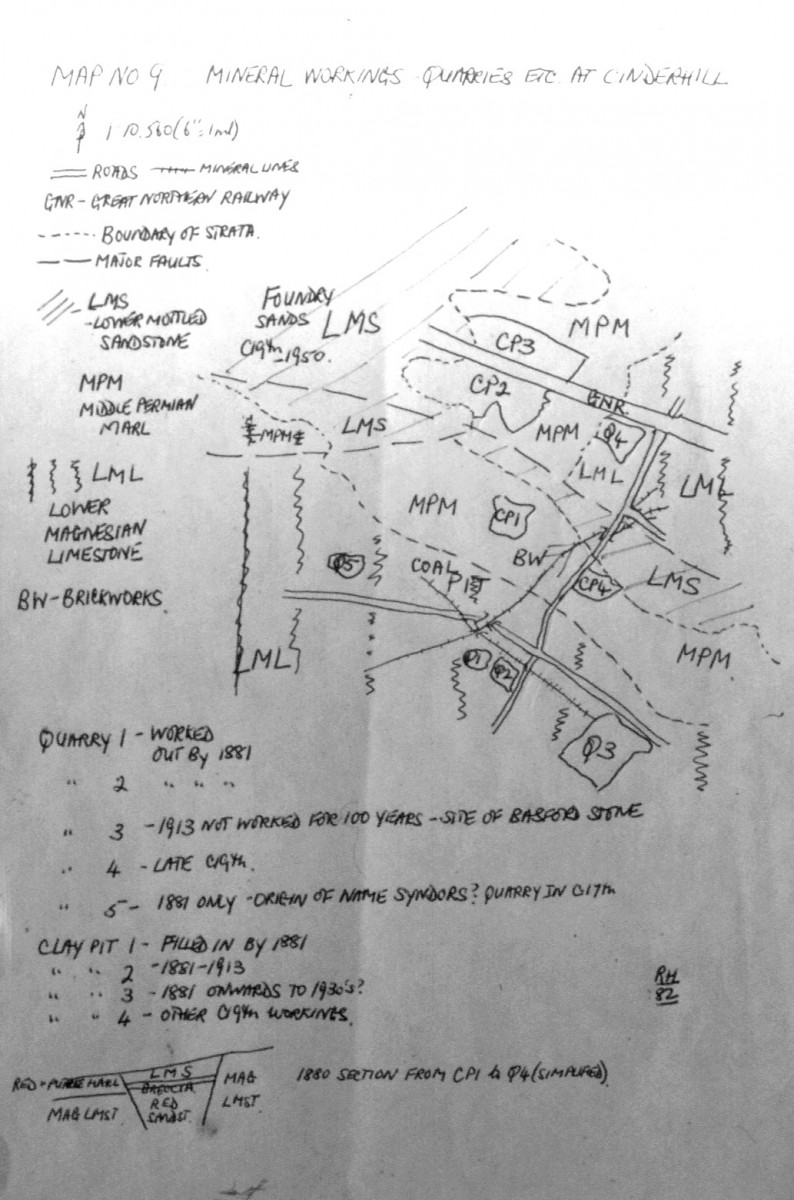 MAP NO 9 MINERAL WORKINGS QUARRIES ETC. AT CINDERHILL
N
1:10.560 (6"=1ml)
ROADS MINERAL LINES
GNR - GREAT NORTHERN RAILWAY
BOUNDARY OF STRATA.
MAJOR FAULTS.
LMS
- LOWER MOTTLED
SANDSTONE
MPM
MIDDLE PERMIAN
MARL
LML
LOWER
MAGNESIAN
LIMESTONE
BW - BRICKWORKS.
FOUNDRY
SANDS
C19th-1950.
LMS
MPM
CP3
CP2
GNR.
LMS
MPM
MPM
Q4
LML
LML
MPM
CP1
BW
Q5
COAL
PIT
CP4
LMS
LML
Q1
Q2
MPM
Q3
QUARRY 1 - WORKED
OUT BY 1881
" 2 " " "
" 3 - 1913 NOT WORKED FOR 100 YEARS - SITE OF BASFORD STONE
" 4 - LATE C19th.
" 5 - 1881 ONLY - ORIGIN OF NAME SYNDORS? QUARRY IN C17th
CLAY PIT 1 - FILLED IN BY 1881
" " 2 - 1881-1913
" " 3 - 1881 ONWARDS TO 1930's?
" " 4 - OTHER C19th WORKINGS.
RH
82
RED + PURPLE MARL
MAG LMST.
LMS
BRECCIA
RED
SANDST.
MAG
LMST.
1880 SECTION FROM CP1 to Q4 (SIMPLIFIED)